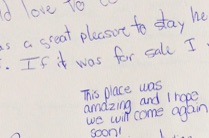 love to
s a great pleasure to stay he
. If it was for sale I
This place was
amazing and I hope
we will come again
soon!